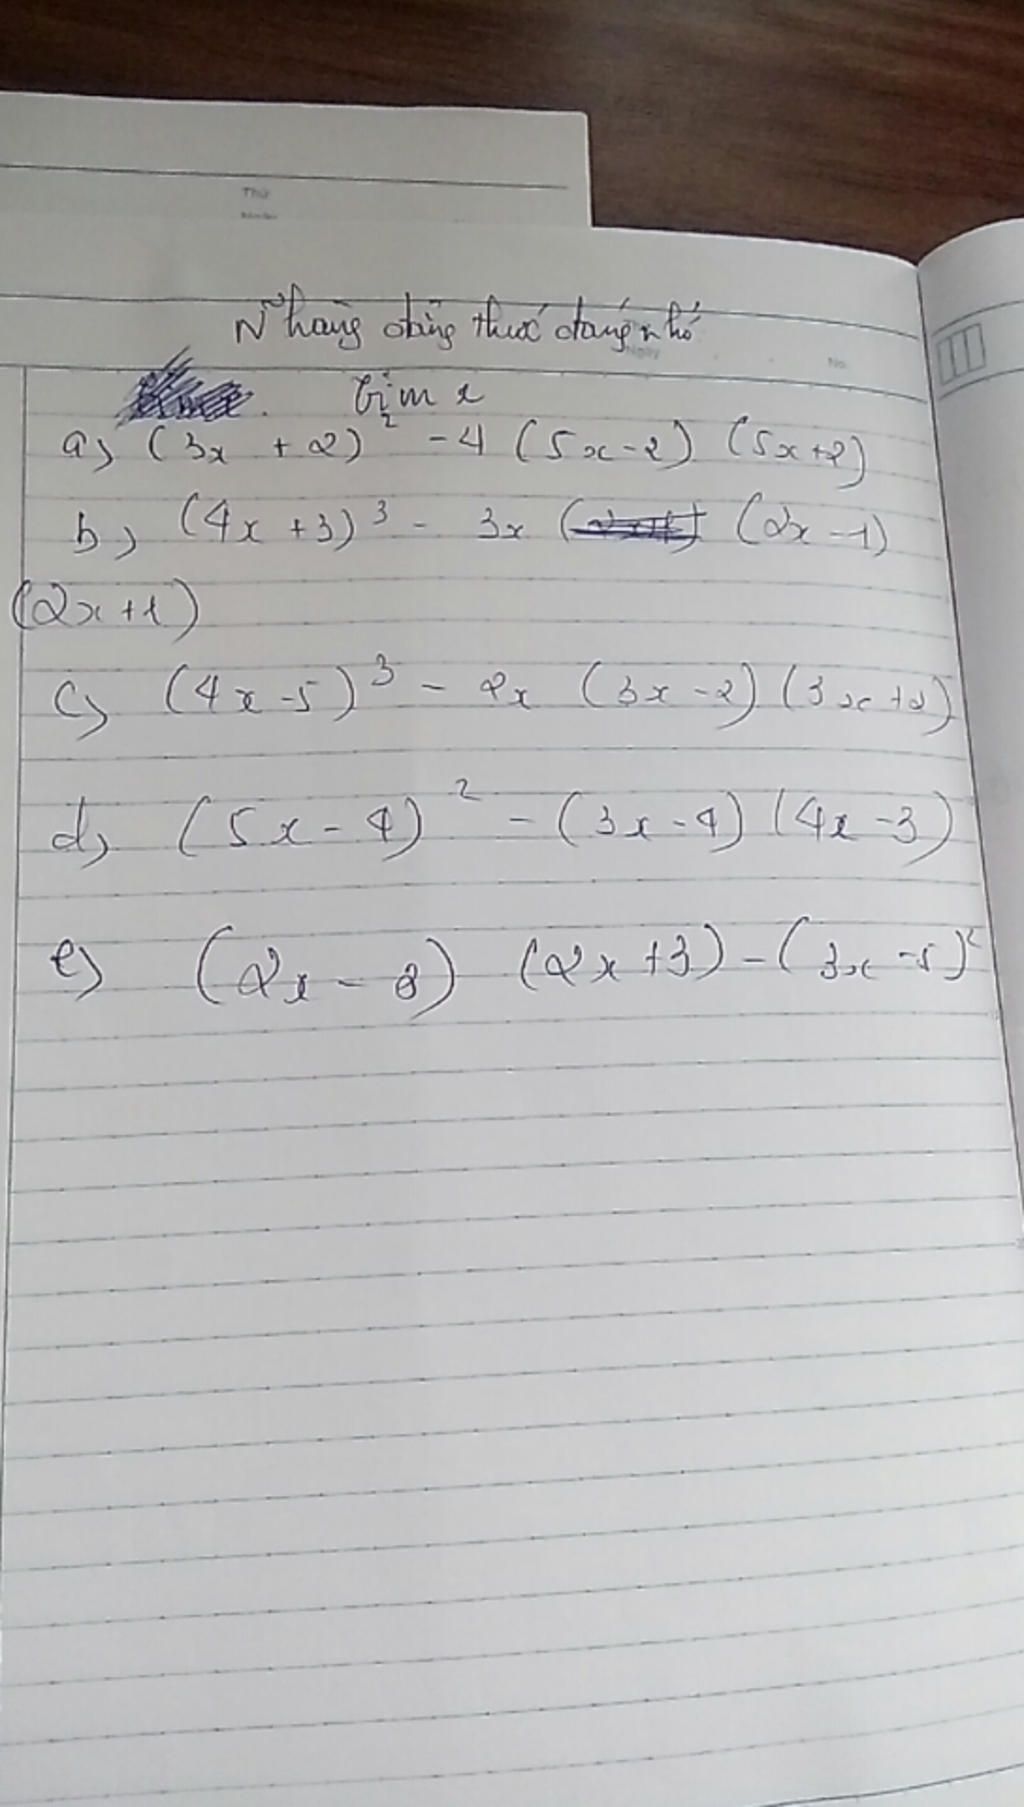 Thứ
Những hằng đẳng thức đáng nhớ
Ngày
No.
Tìm x
a) (3x + 2)² - 4 (5x - 2) (5x + 2)
b) (4x + 3)³ - 3x (2x - 1)
(2x + 1)
c) (4x - 5)³ - 2x (3x - 2) (3x + 2)
d) (5x - 4)² - (3x - 4) (4x - 3)
e) (2x - 8) (2x + 3) - (3x - 5)²